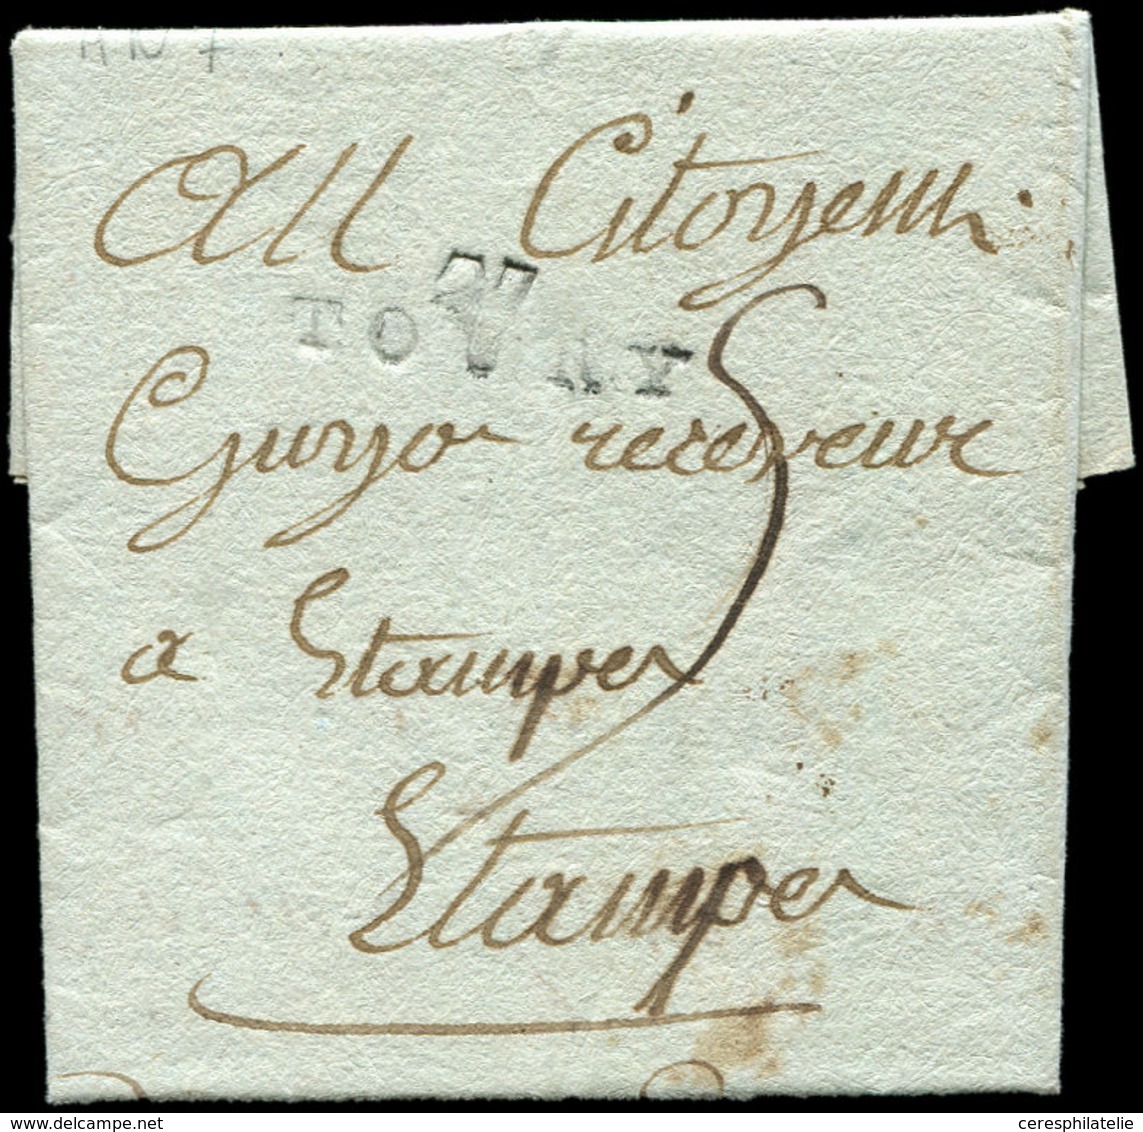 AN 7
Au Citoyen
27
TOURY
5
Guyo receveur
a Etampes
Etampes
www.delcampe.net
ceresphilatelie